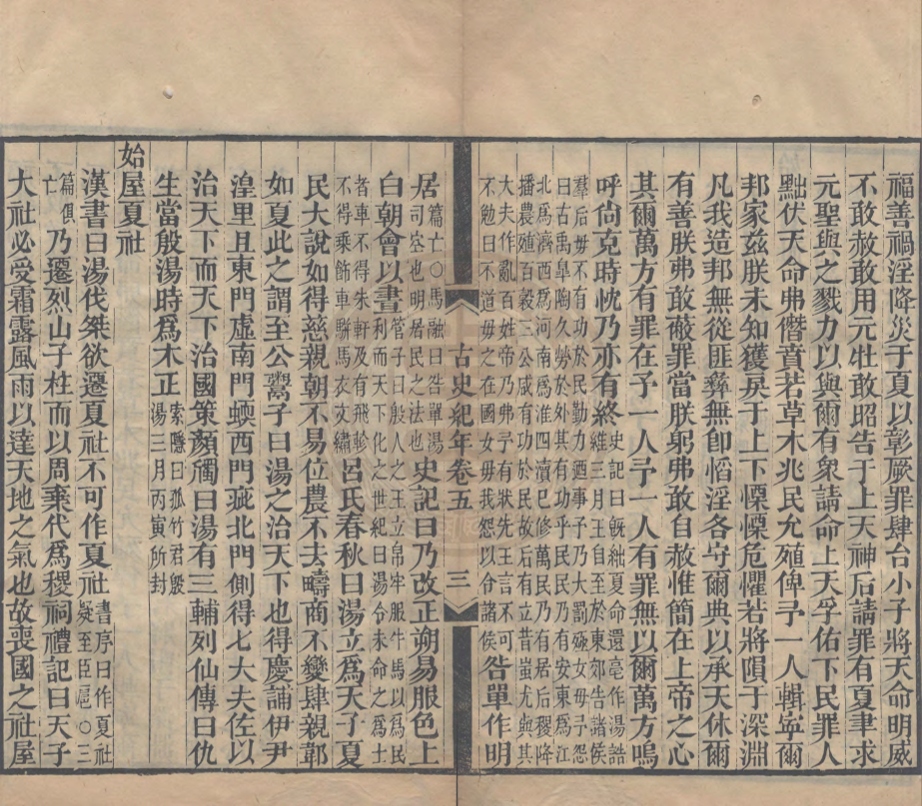 福善禍淫降災于夏以彰厥罪肆台小子將天命明威
不敢赦敢用元牡敢昭告于上天神后請罪有夏聿求
元聖與之戮力以與爾有衆請命上天孚佑下民罪人
黜伏天命弗僭賁若草木兆民允殖俾予一人輯寧爾
邦家茲朕未知獲戾于上下慄慄危懼若將隕于深淵
凡我造邦無從匪彝無卽慆淫各守爾典以承天休爾
有善朕弗敢蔽罪當朕躬弗敢自赦惟簡在上帝之心
其爾萬方有罪在予一人予一人有罪無以爾萬方嗚
呼尙克時忱乃亦有終史記曰旣絀夏命還亳作湯誥
維三月王自至於東郊告諸侯
羣后毋不有功於民勤力廼事予乃大罰殛女毋予怨
曰古禹臯陶久勞於外其有功乎民民乃有安東爲江
北爲濟西爲河南爲淮四瀆已修萬民乃有居后稷降
播農殖百穀三公咸有功於民故后有立昔蚩尤與其
大夫作亂百姓帝乃弗予有狀先王言不可
不勉曰不道毋之在國女毋我怨以令諸侯咎單作明
古史紀年卷五 三
居篇亡〇馬融曰咎單湯
司空也明居民之法也史記曰乃改正朔易服色上
白朝會以晝管子曰殷人之王立帛牢服牛馬以爲民
利而天下化之世紀曰湯令未命之爲士
者車不得朱軒及有飛軫
不得乘飾車駢馬衣文繡呂氏春秋曰湯立爲天子夏
民大說如得慈親朝不易位農不去疇商不變肆親郼
如夏此之謂至公鬻子曰湯之治天下也得慶誧伊尹
湟里且東門虛南門蝡西門疵北門側得七大夫佐以
治天下而天下治國策顏斶曰湯有三輔列仙傳曰仇
生當殷湯時爲木正索隱曰孤竹君殷
湯三月丙寅所封
始屋夏社
漢書曰湯伐桀欲遷夏社不可作夏社書序曰作夏社
疑至臣扈〇三
篇俱
亡乃遷烈山子柱而以周棄代爲稷祠禮記曰天子
大社必受霜露風雨以達天地之氣也故喪國之社屋